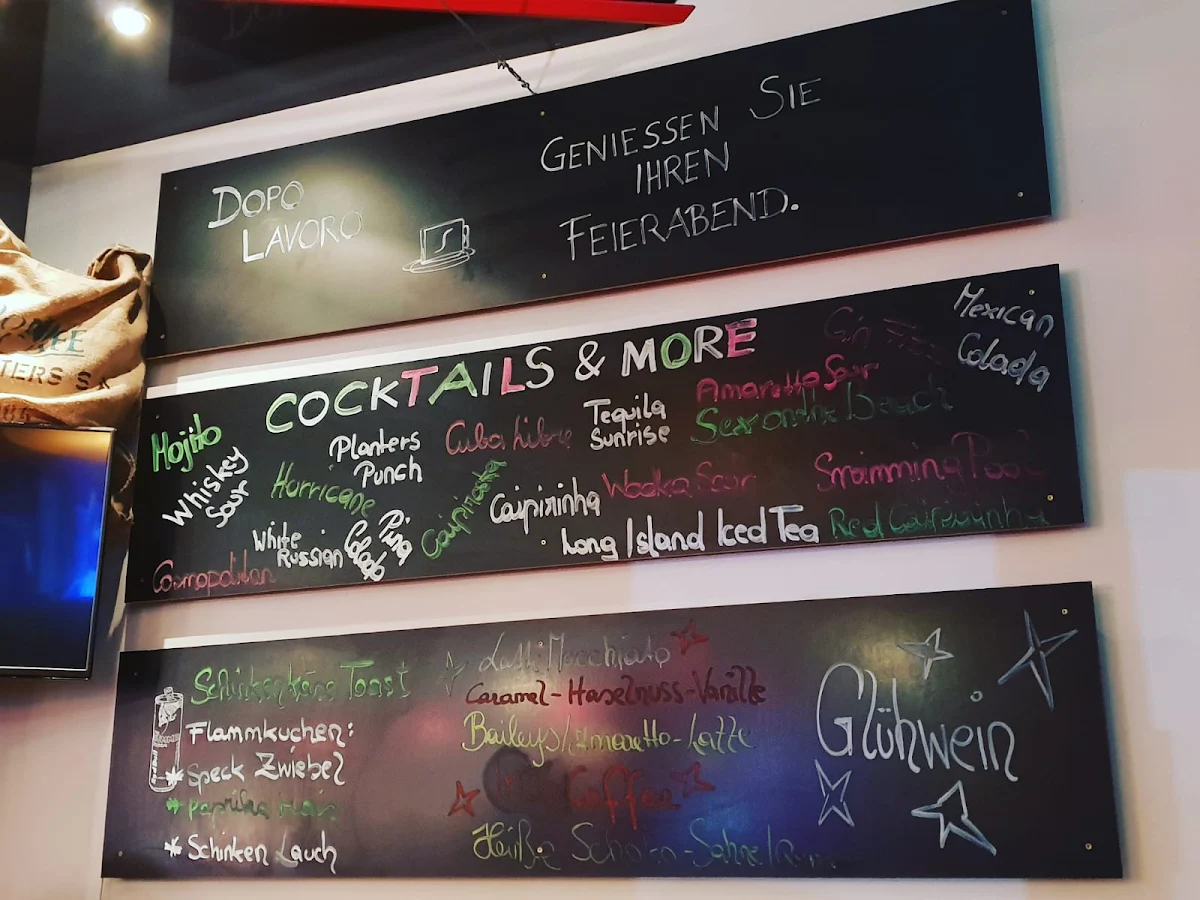 DOPO
LAVORO
GENIESSEN SIE
IHREN
FEIERABEND.
COCKTAILS & MORE
Mojito
Whiskey
Sour
Cosmopolitan
Horricane
White
Russian
Planters
Punch
Pina
Colada
Cuba Libre
Caipiroska
Caipirinha
Tequila
Sunrise
Wodka Sour
Long Island Iced Tea
Gin
Amaretto Sour
Sex on the Beach
Swimming Pool
Red Caipirinha
Mexican
Colada
Schinkenkäse Toast
Flammkuchen:
* Speck Zwiebel
* Paprika Mais
* Schinken Lauch
Latte Macchiato
Caramel-Haselnuss-Vanille
Baileys/Amaretto-Latte
Coffee
Heiße Schoko-Sahne/Rum
Glühwein